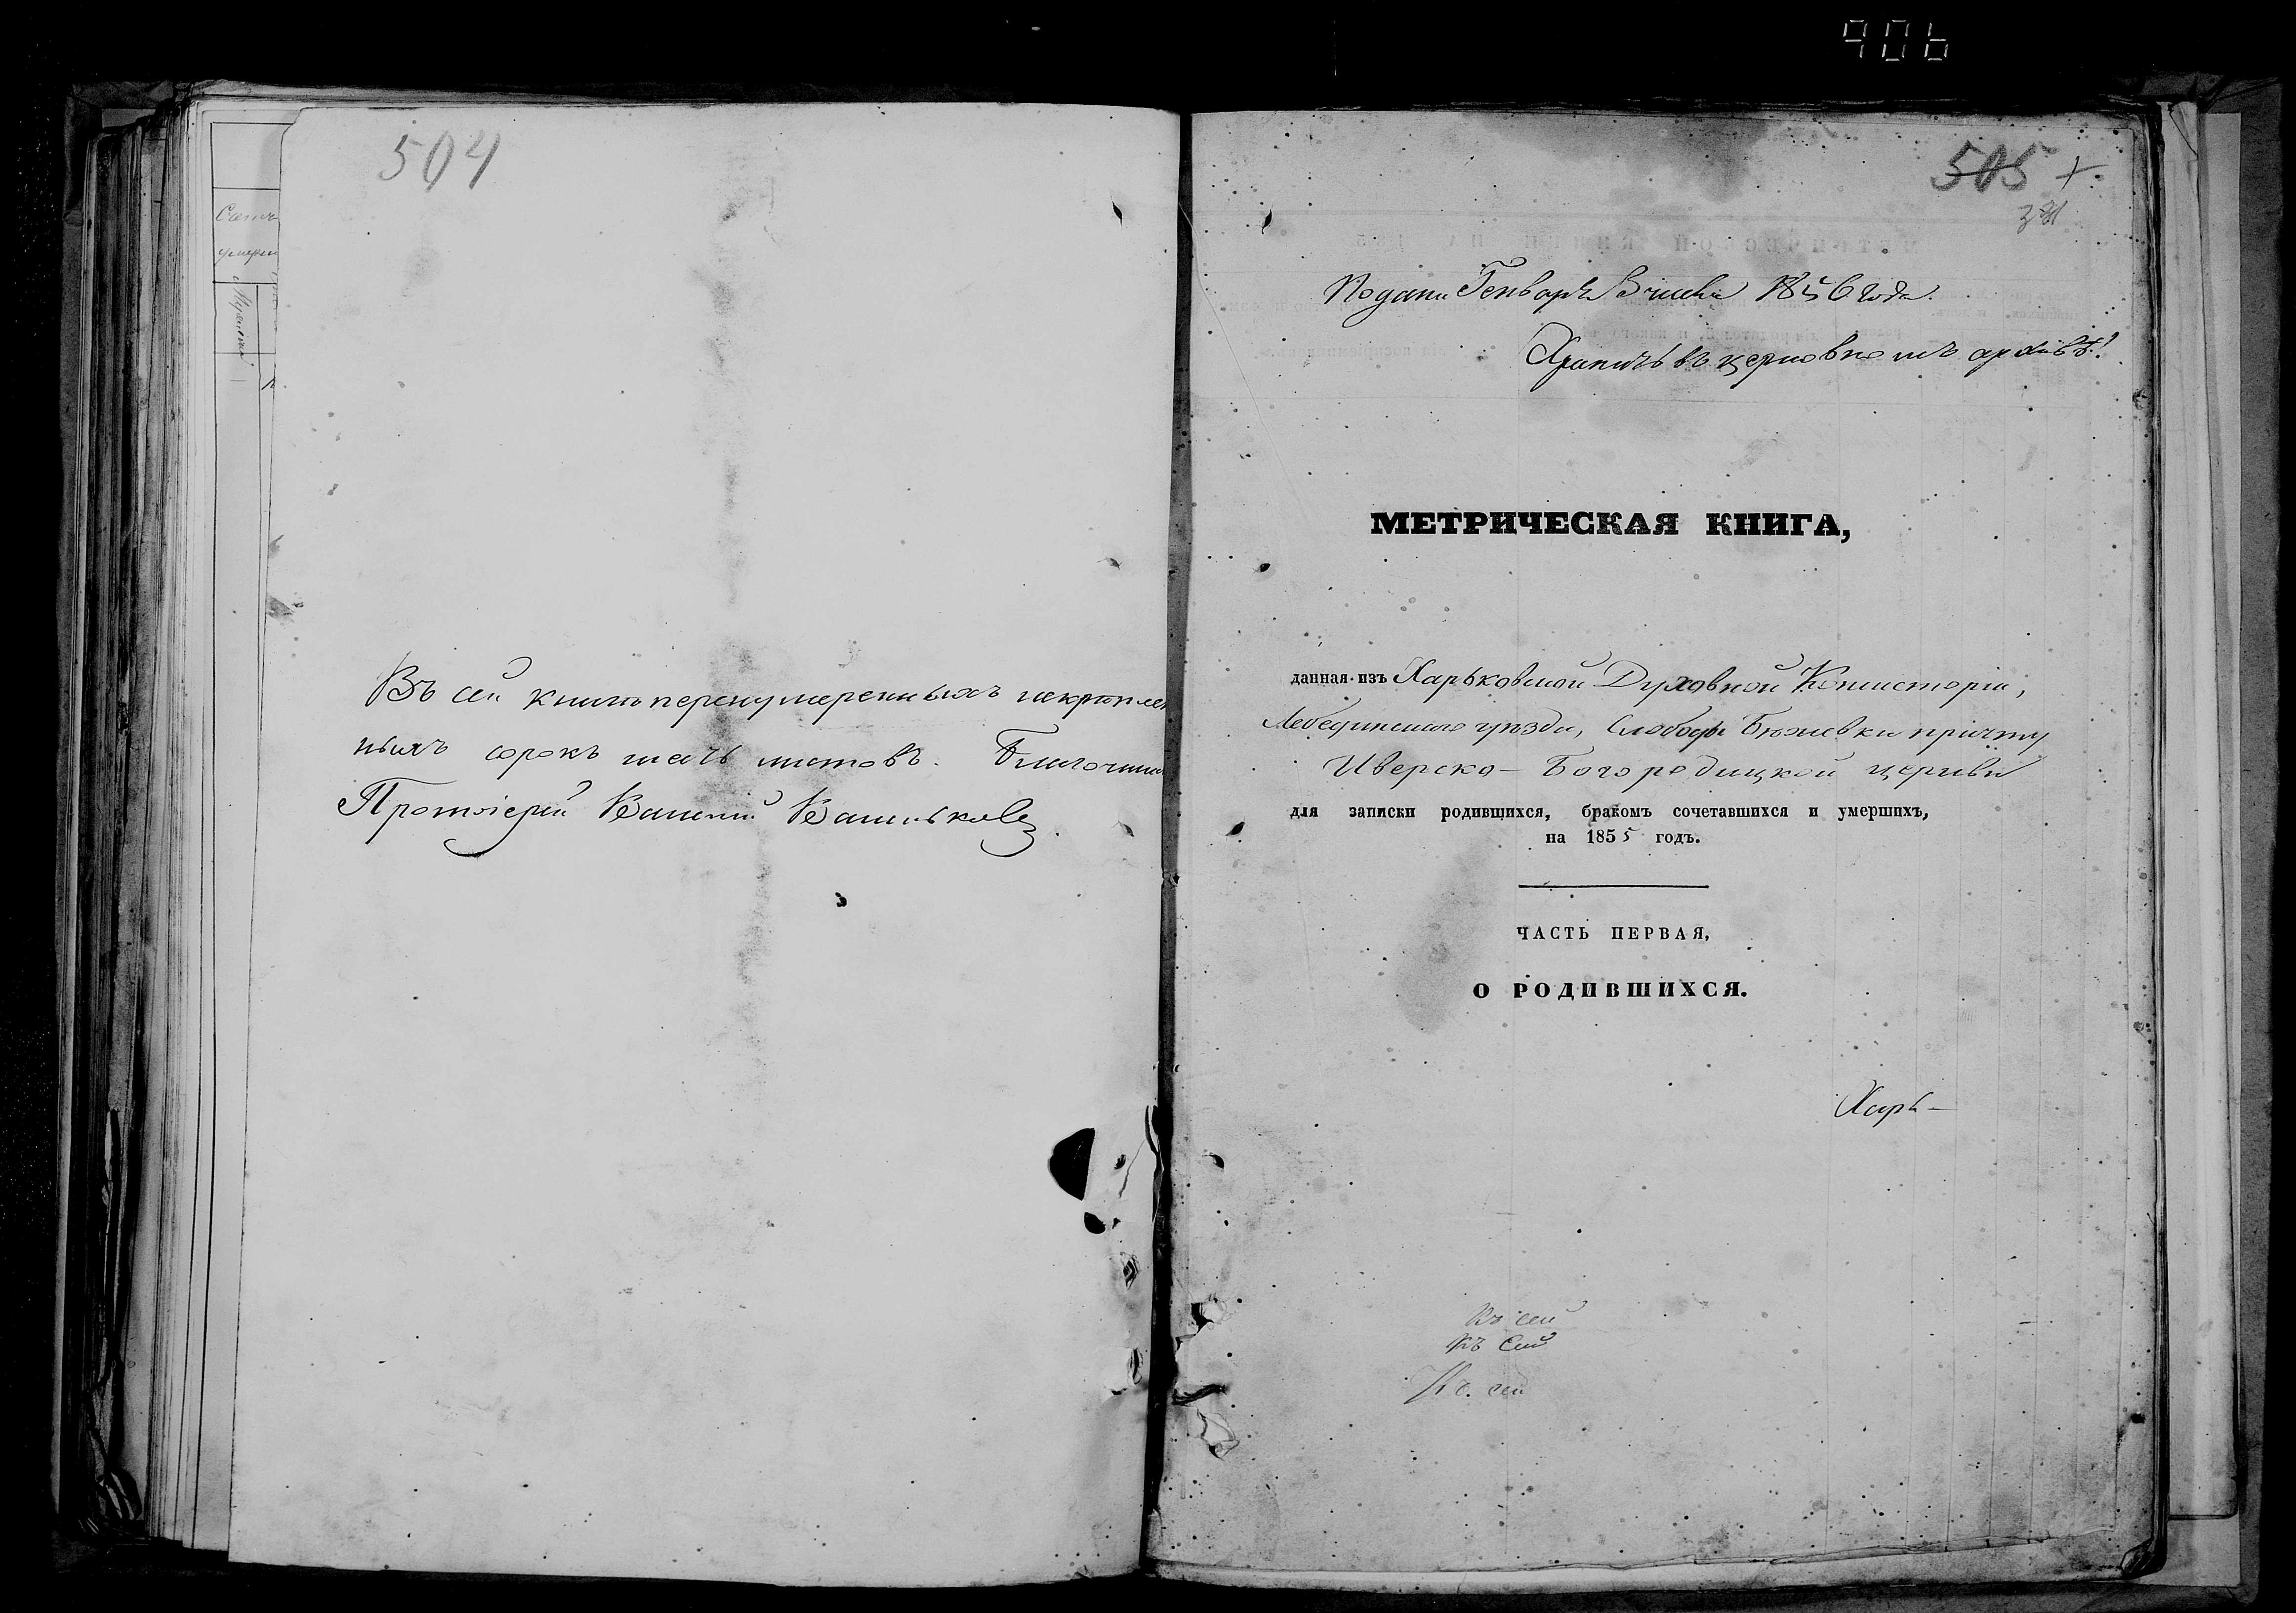 906
504
Въ сей книгѣ перенумеренныхъ искрѣплен
ныхъ сорокъ шесть листовъ. Благочинны
Протоіерей Василій Васильковъ
505
Поданъ Генваря числа 1856 года.
Хранить въ церковномъ архивѣ!
МЕТРИЧЕСКАЯ КНИГА,
данная изъ Харьковской Духовной Консисторіи,
Лебединскаго уѣзда, Слободы Бѣжевки причту
Иверско-Богородицкой церкви
для записки родившихся, бракомъ сочетавшихся и умершихъ,
на 1855 годъ.
ЧАСТЬ ПЕРВАЯ,
О РОДИВШИХСЯ.
Харь-
Къ сей
Къ сей
Къ сей